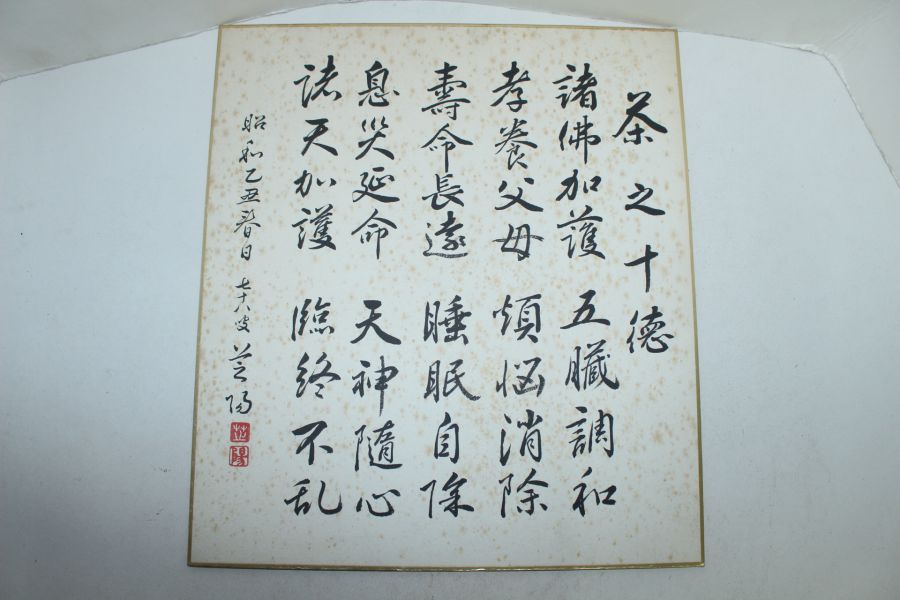 茶之十徳
諸佛加護 五臓調和
孝養父母 煩悩消除
壽命長遠 睡眠自除
息災延命 天神随心
諸天加護 臨終不乱
昭和乙丑春日 七十八叟 芝陽